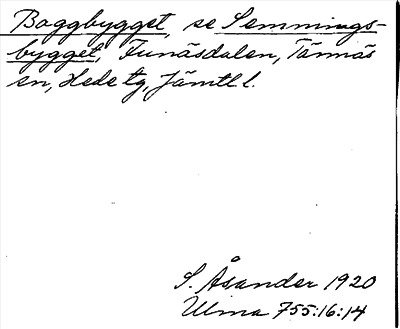 Baggbygget, se Semmings-
bygget, Funäsdalen, Tännäs
sn, Hede tg, Jämtl l.
S. Åsander 1920
Ulma 755:16:14